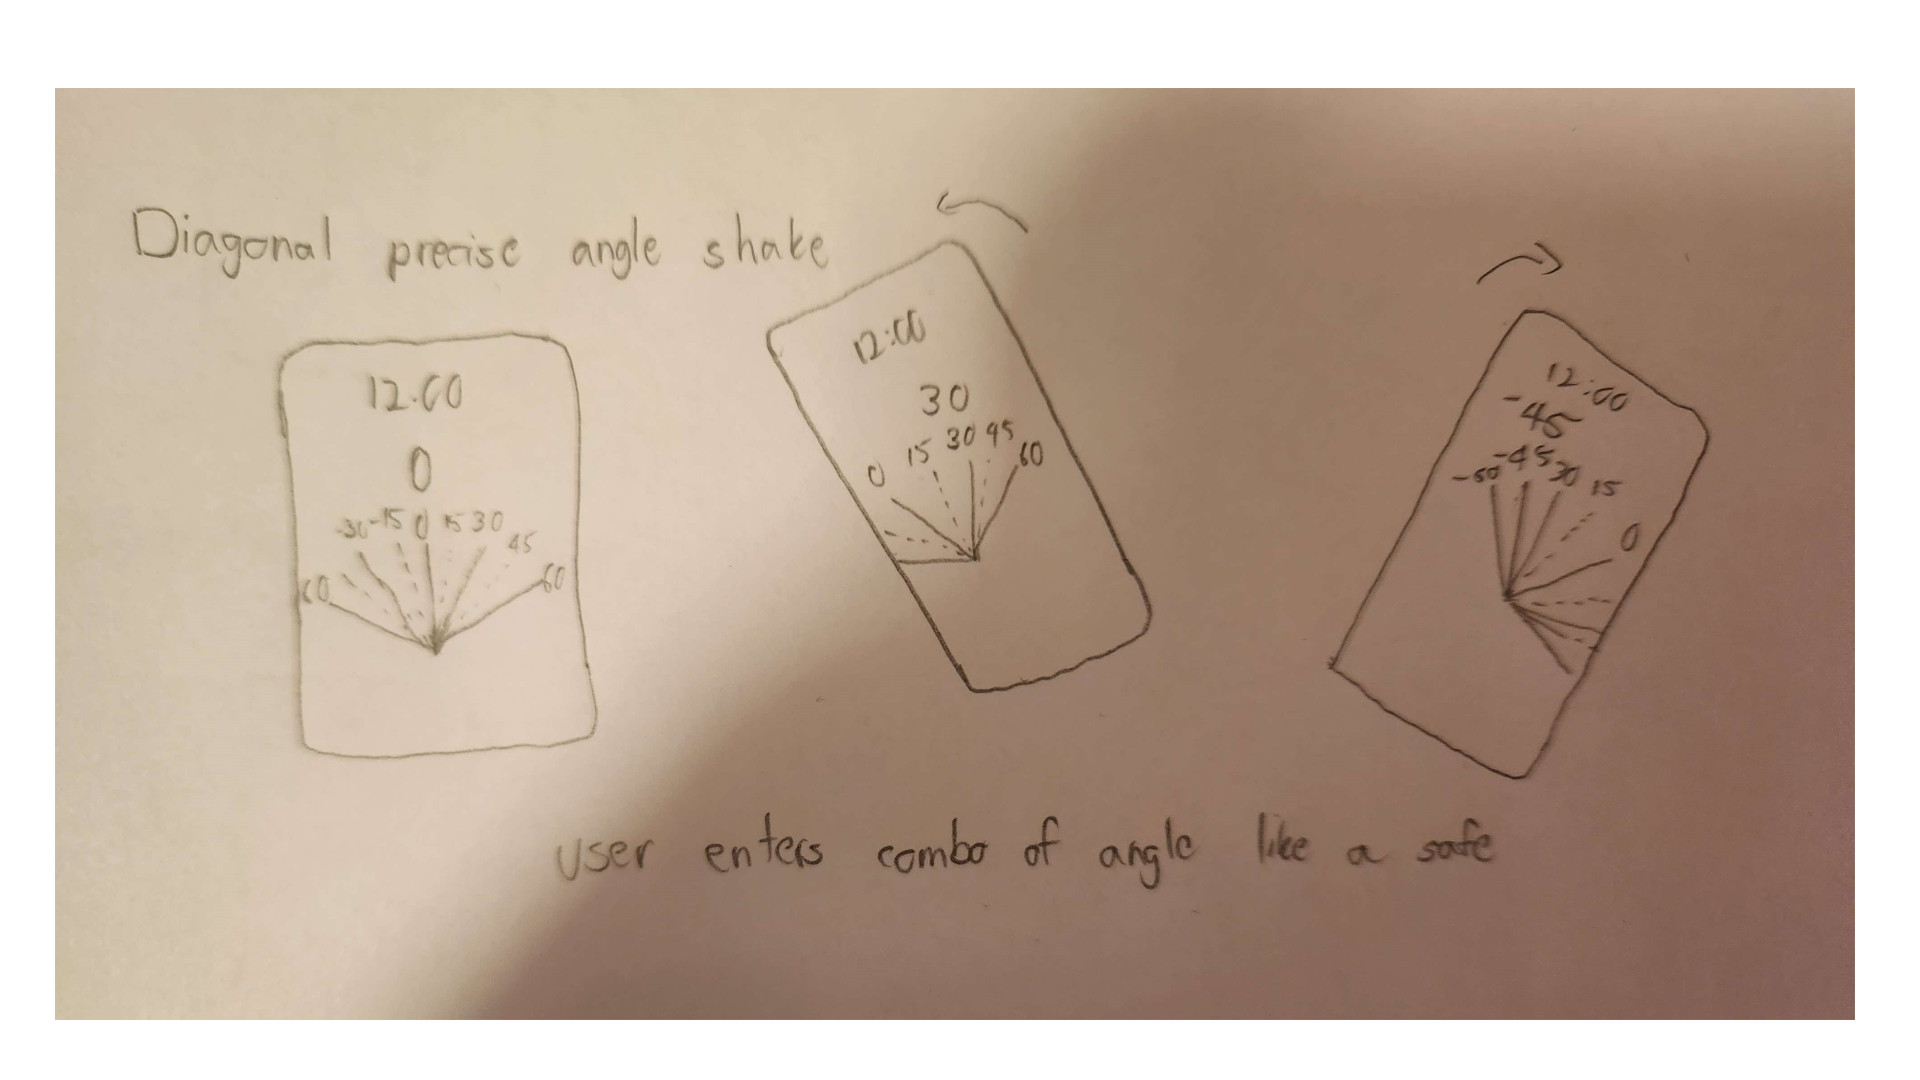 Diagonal precise angle shake
12:00
0
-30 -15 0 15 30
45
60 60
12:00
30
0 15 30 45 60
12:00
-45
-60 -45 30 15
0
user enters combo of angle like a safe